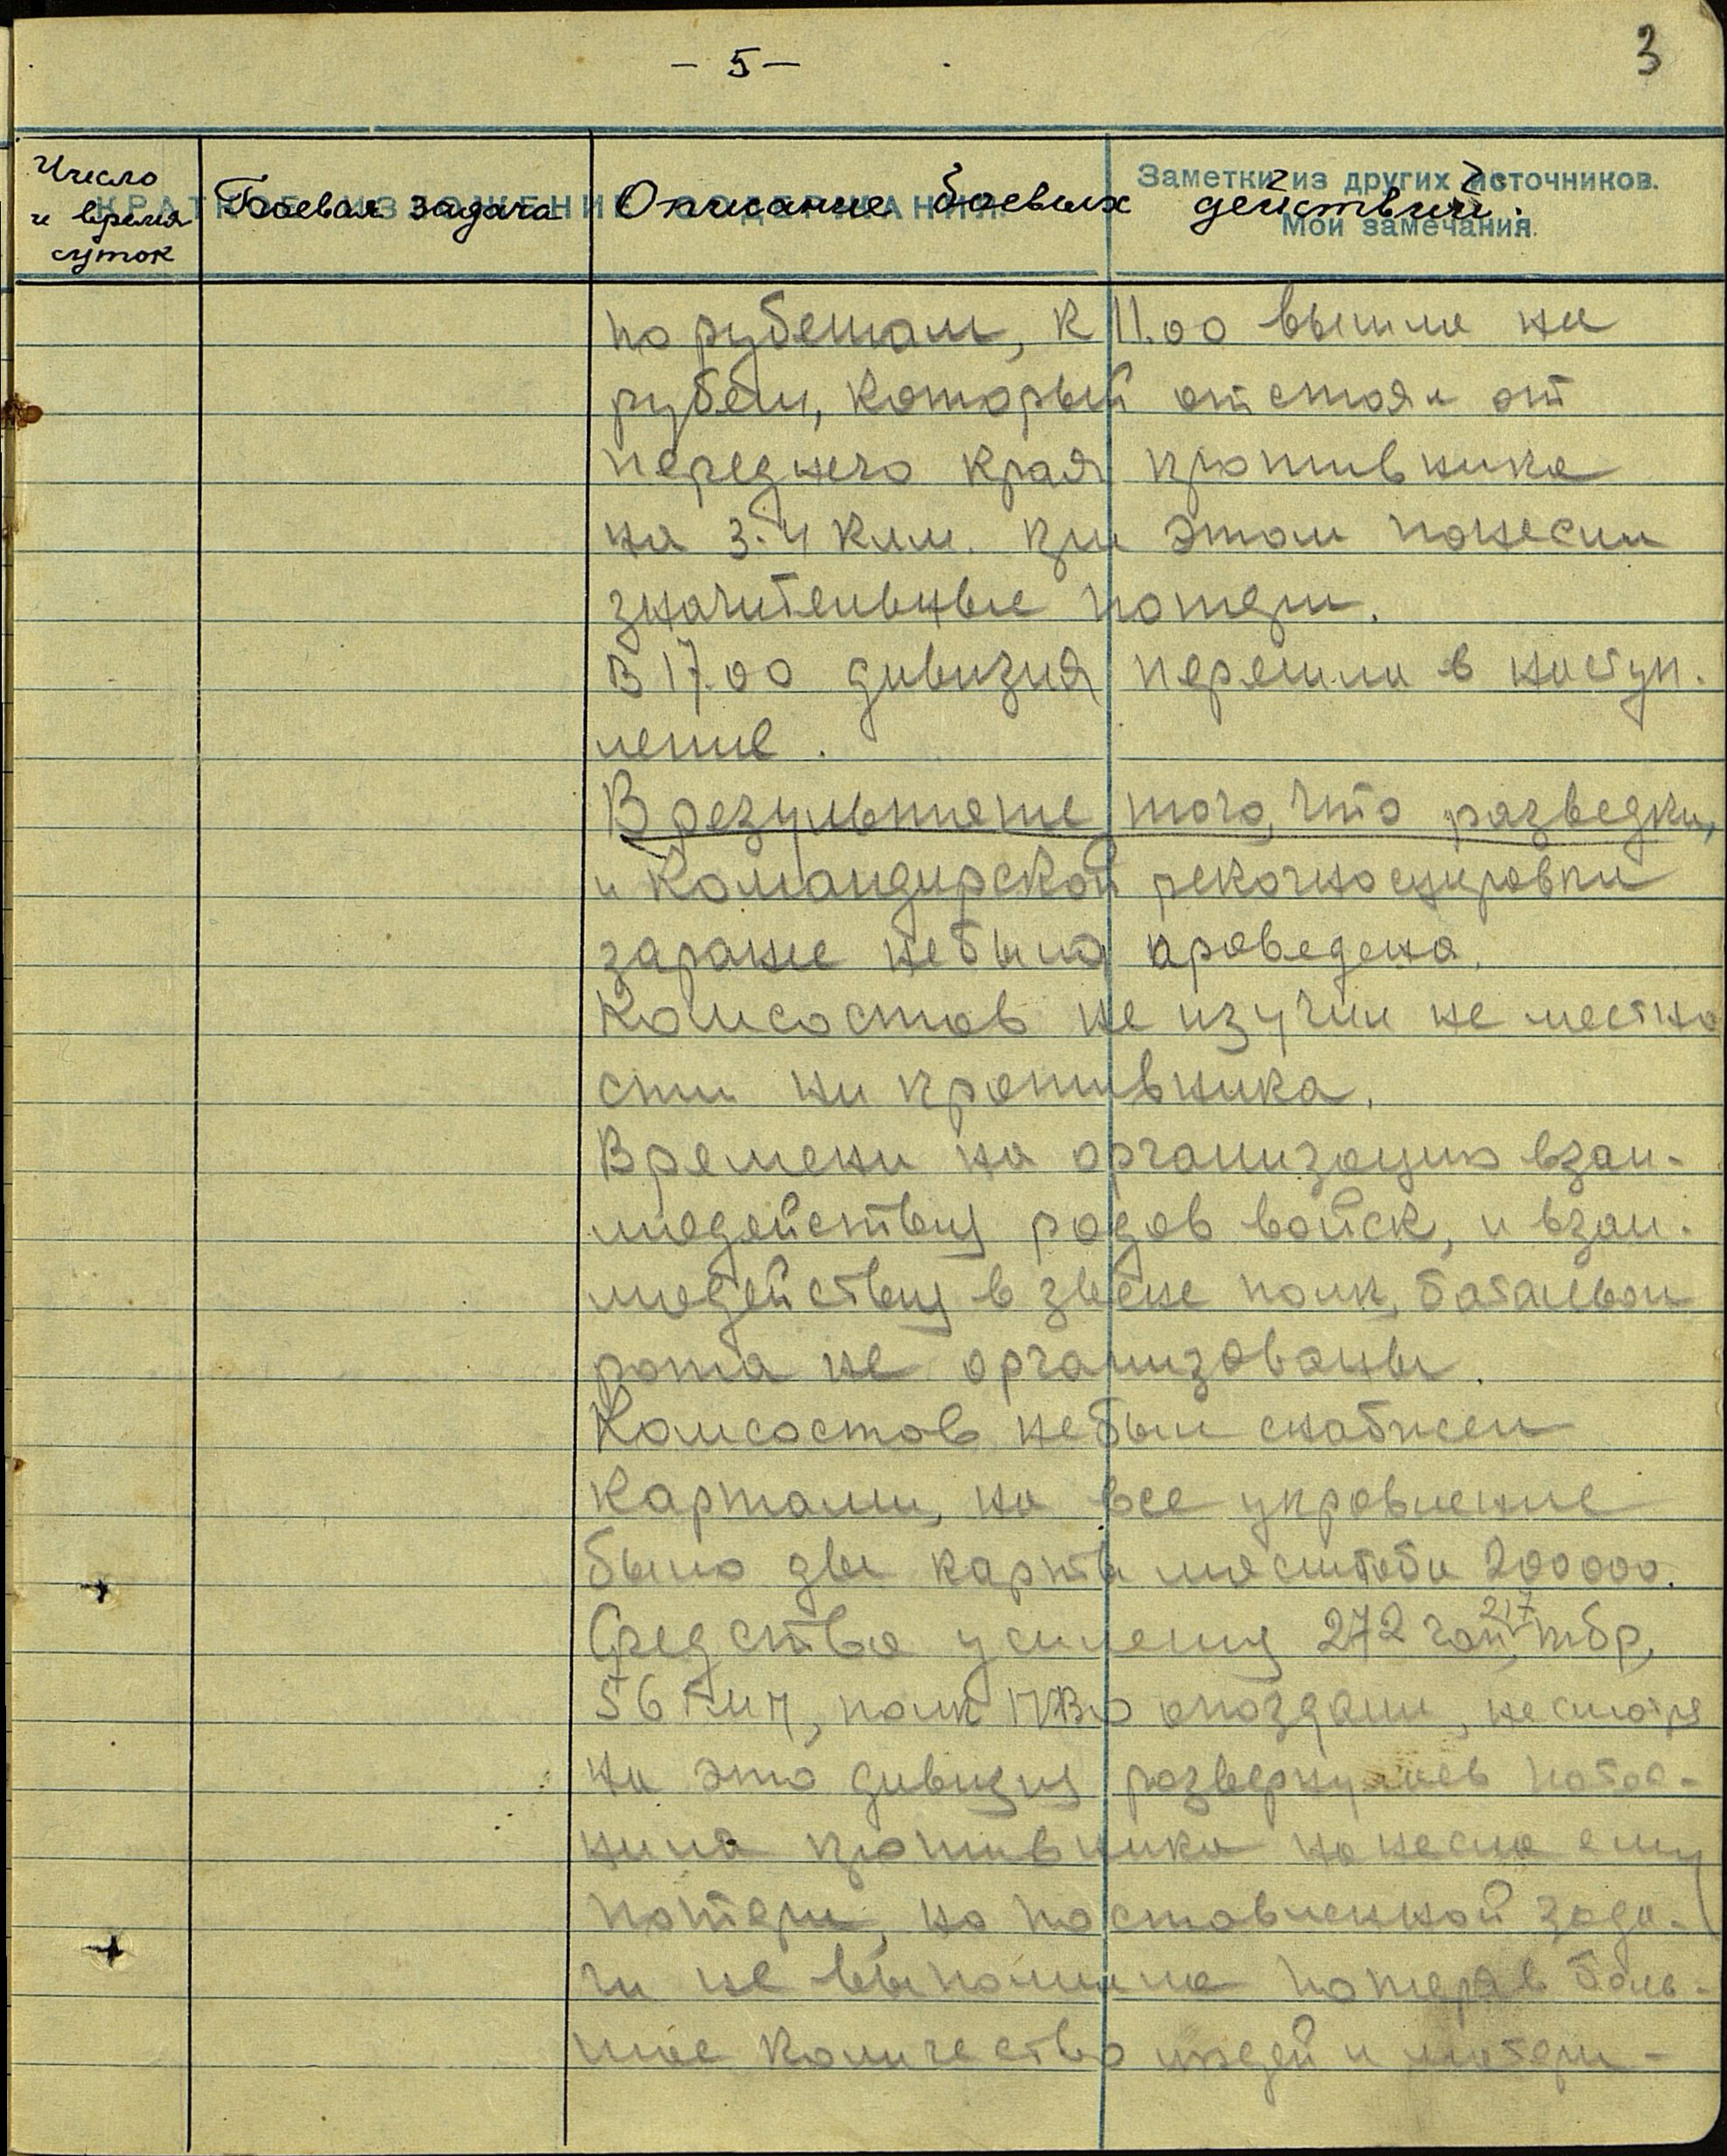 - 5 -
3
Число
и время
суток
Боевая задача
Описание боевых действий.
КРАТКОЕ ИЗЛОЖЕНИЕ СОДЕРЖАНИЯ.
Заметки из других источников.
Мои замечания.
по рубежам, к 11.00 вышла на
рубеж, который отстоял от
переднего края противника
на 3-4 клм. при этом понесли
значительные потери.
В 17.00 дивизия перешла в наступ-
ление.
В результате того, что разведки,
и командирской рекогносцировки
заранее небыло проведено.
Комсостав не изучил не местно
сти ни противника.
Времени на организацию взаи-
модействия родов войск, и взаи-
модействия в звене полк, батальон
рота не организованы.
Комсостав небыл снабжен
картами, на все управление
было две карты масштаба 200000.
Средства усиления 272 гап, 217 тбр,
56 гмп, полк ПВО опоздали, несмотря
на это дивизия развернулась
противника нанесла ему
потери, но поставленной зада-
чи не выполнила потеряв боль-
шое количество людей и матери-